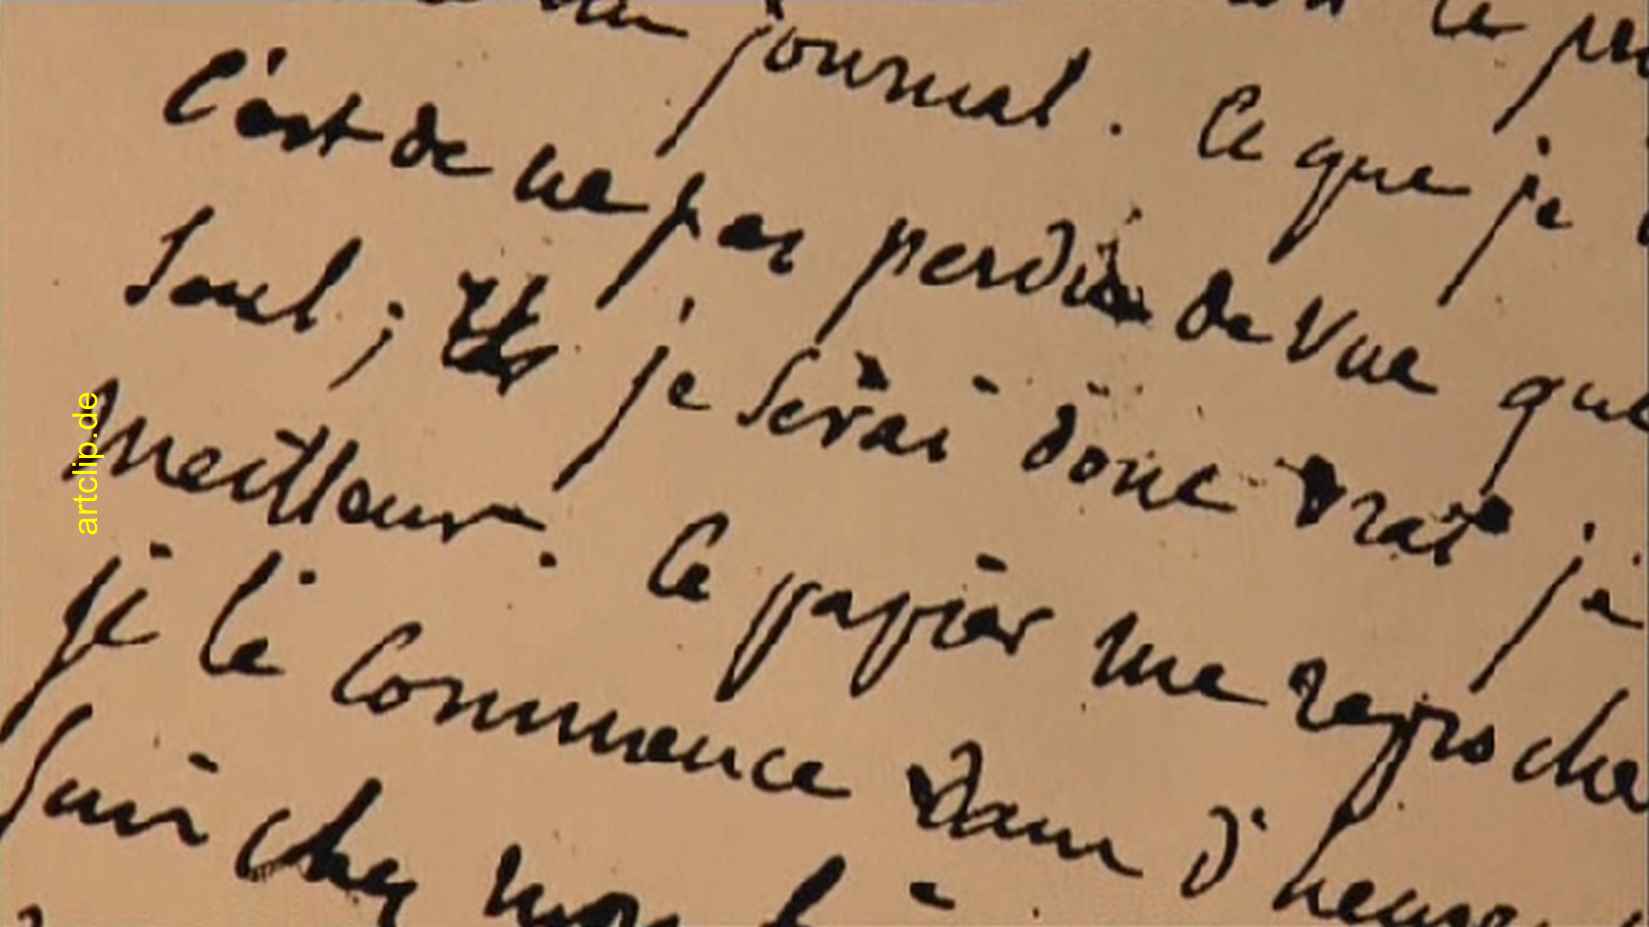 journal. Ce que je
C'est de ne pas perdre de vue que
seul ; je serai donc vrai je
meilleur. Ce papier me reproche
je le commence dans d'heure
suis chez moi
artclip.de